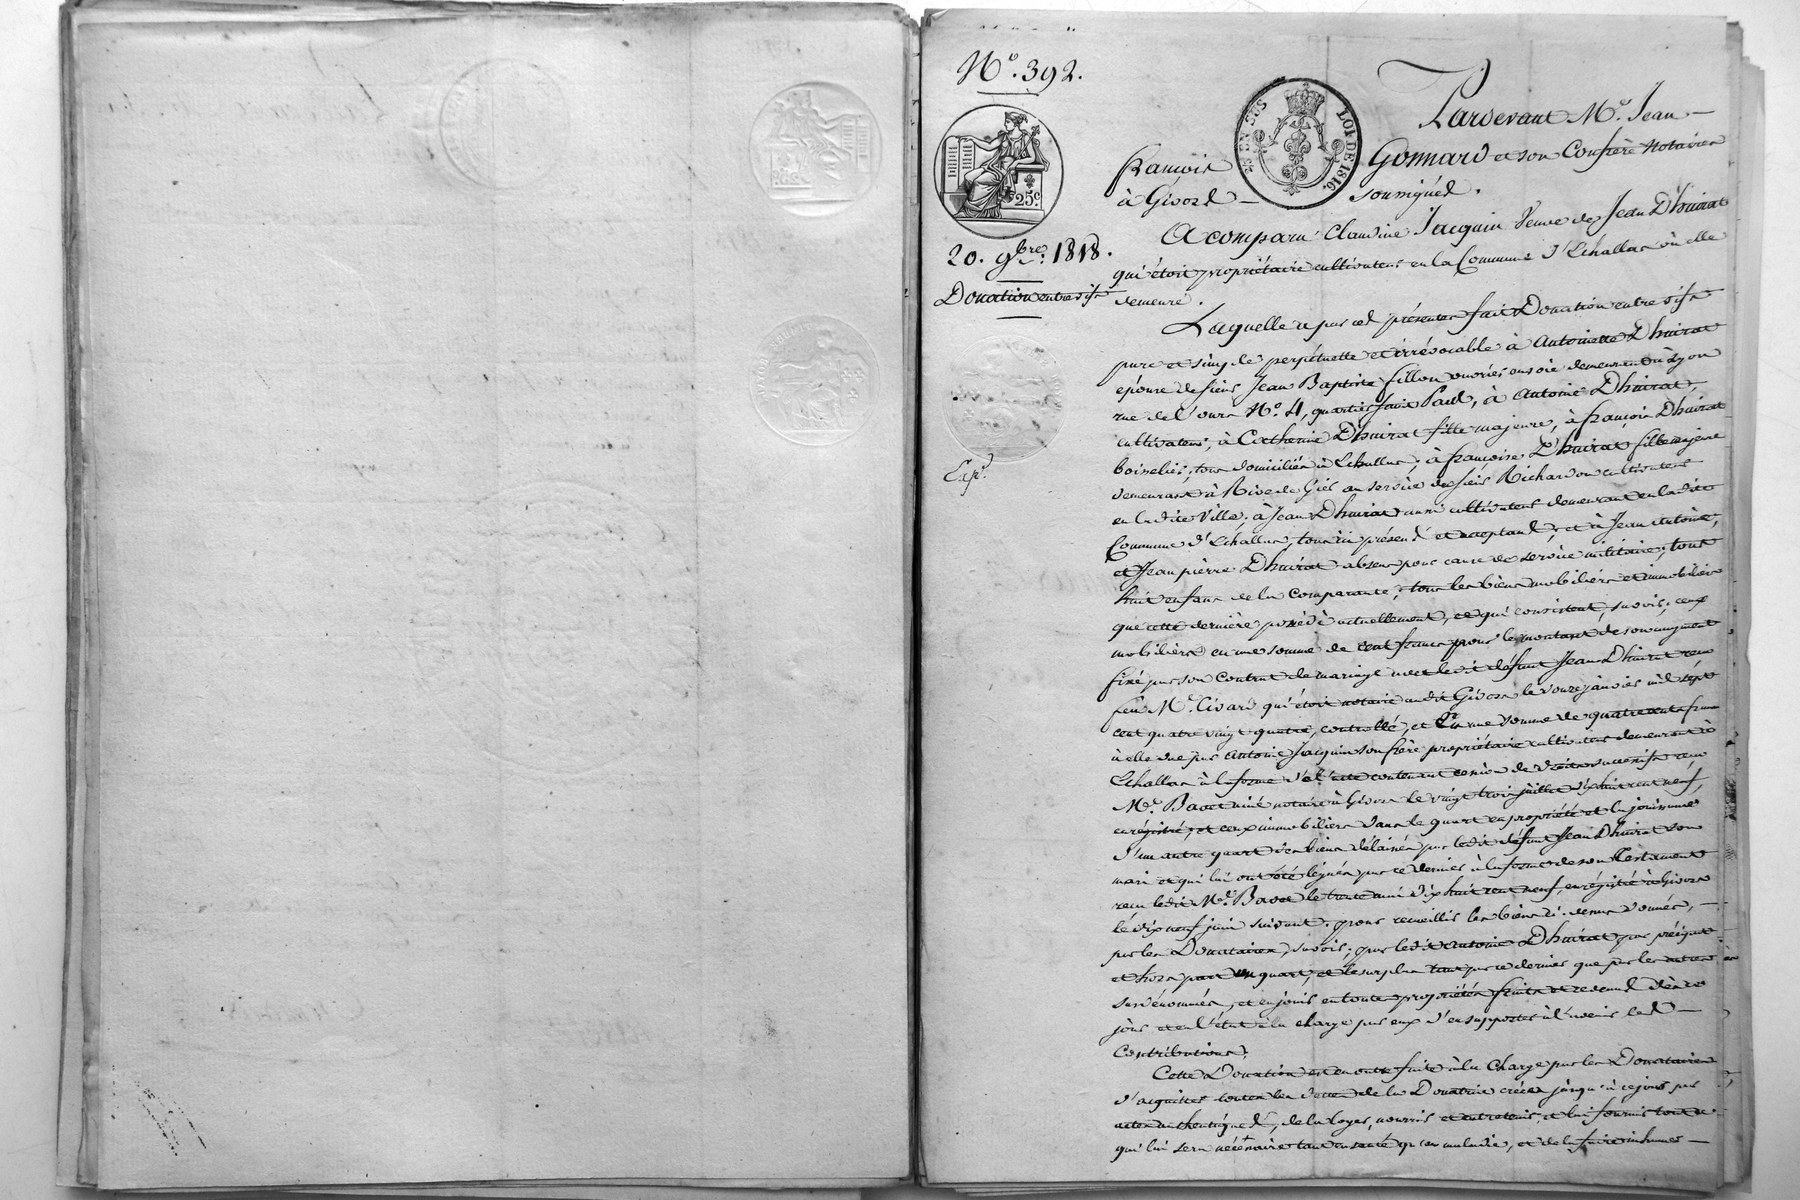 N.º 392.
25 EN SUS
LOI DE 1816.
25c.
20. 9bre. 1818.
Donation entrevifs
Exp.
Pardevant M.e Jean
françois Gonnard et son Confrère Notaires
à Givors soussignés.
A comparu Claudine Jacquin Veuve de Jean Dhuirat
qui étoit propriétaire cultivateur en la Commune d'Echallas où elle
demeure.
Laquelle a par ces présentes fait Donation entrevifs
pure et simple perpétuelle et irrévocable à Antoinette Dhuirat
épouse de sieur Jean Baptiste fillon ouvrier en soie demeurant à Lyon
rue de l'ours N.º 4, quartier saint Paul, à Antoine Dhuirat,
cultivateur, à Catherine Dhuirat fille majeure, à françois Dhuirat
boisselier, tous domiciliés à Echallas, à françoise Dhuirat fille majeure
demeurant à Rive de Gier au service du sieur Richard cultivateur
en ladite Ville, à Jean Dhuirat aussi cultivateur demeurant en ladite
Commune d'Echallas, tous ici présens et acceptans, et à Jean Antoine,
et Jean pierre Dhuirat absens pour cause de service militaire, tous
huit enfans de la comparante, tous les biens mobiliers et immobiliers
que cette dernière possède actuellement, et qui consistent, savoir; ceux
mobiliers en une somme de cent francs pour le montant de son augment
fixé par son contrat de mariage avec ledit défunt Jean Dhuirat reçu
feu M.e Civard qui étoit notaire audit Givors le onze janvier mil sept
cent quatre vingt quatre, contrôlé, et En une somme de quatre cents francs
à elle due par Antoine Jacquin son frère propriétaire cultivateur demeurant à
Echallas à la forme d'un acte contenant cession de droits successifs reçu
M.e Bavet ainé notaire à Givors le vingt trois juillet dix huit cent neuf,
enrégistré, et ceux immobiliers dans le quart en propriété et la jouissance
d'un autre quart des biens délaissés par ledit défunt Jean Dhuirat son
mari et qui lui ont été légués par ce dernier à la forme de son Testament
reçu ledit M.e Bavet le trente mai dix huit cent neuf, enrégistré à Givors
le dix neuf juin suivant. pour recueillir les biens ci-dessus donnés,
par les Donataires, savoir; par ledit Antoine Dhuirat par préciput
et hors part un quart, et le surplus tant par ce dernier que par les autres
susdénommés, et en jouir en toutes propriétés fruits et revenus dès ce
jour et en l'état à la charge par eux d'en supporter à l'avenir les
Contributions.
Cette Donation est en outre faite à la Charge par les Donataires
d'acquitter toutes les dettes de la Donatrice créées jusqu'à ce jour par
actes authentiques, de la loger, nourrir et entretenir, et lui fournir tout ce
qui lui sera nécessaire tant en santé qu'en maladie, et de la faire inhumer